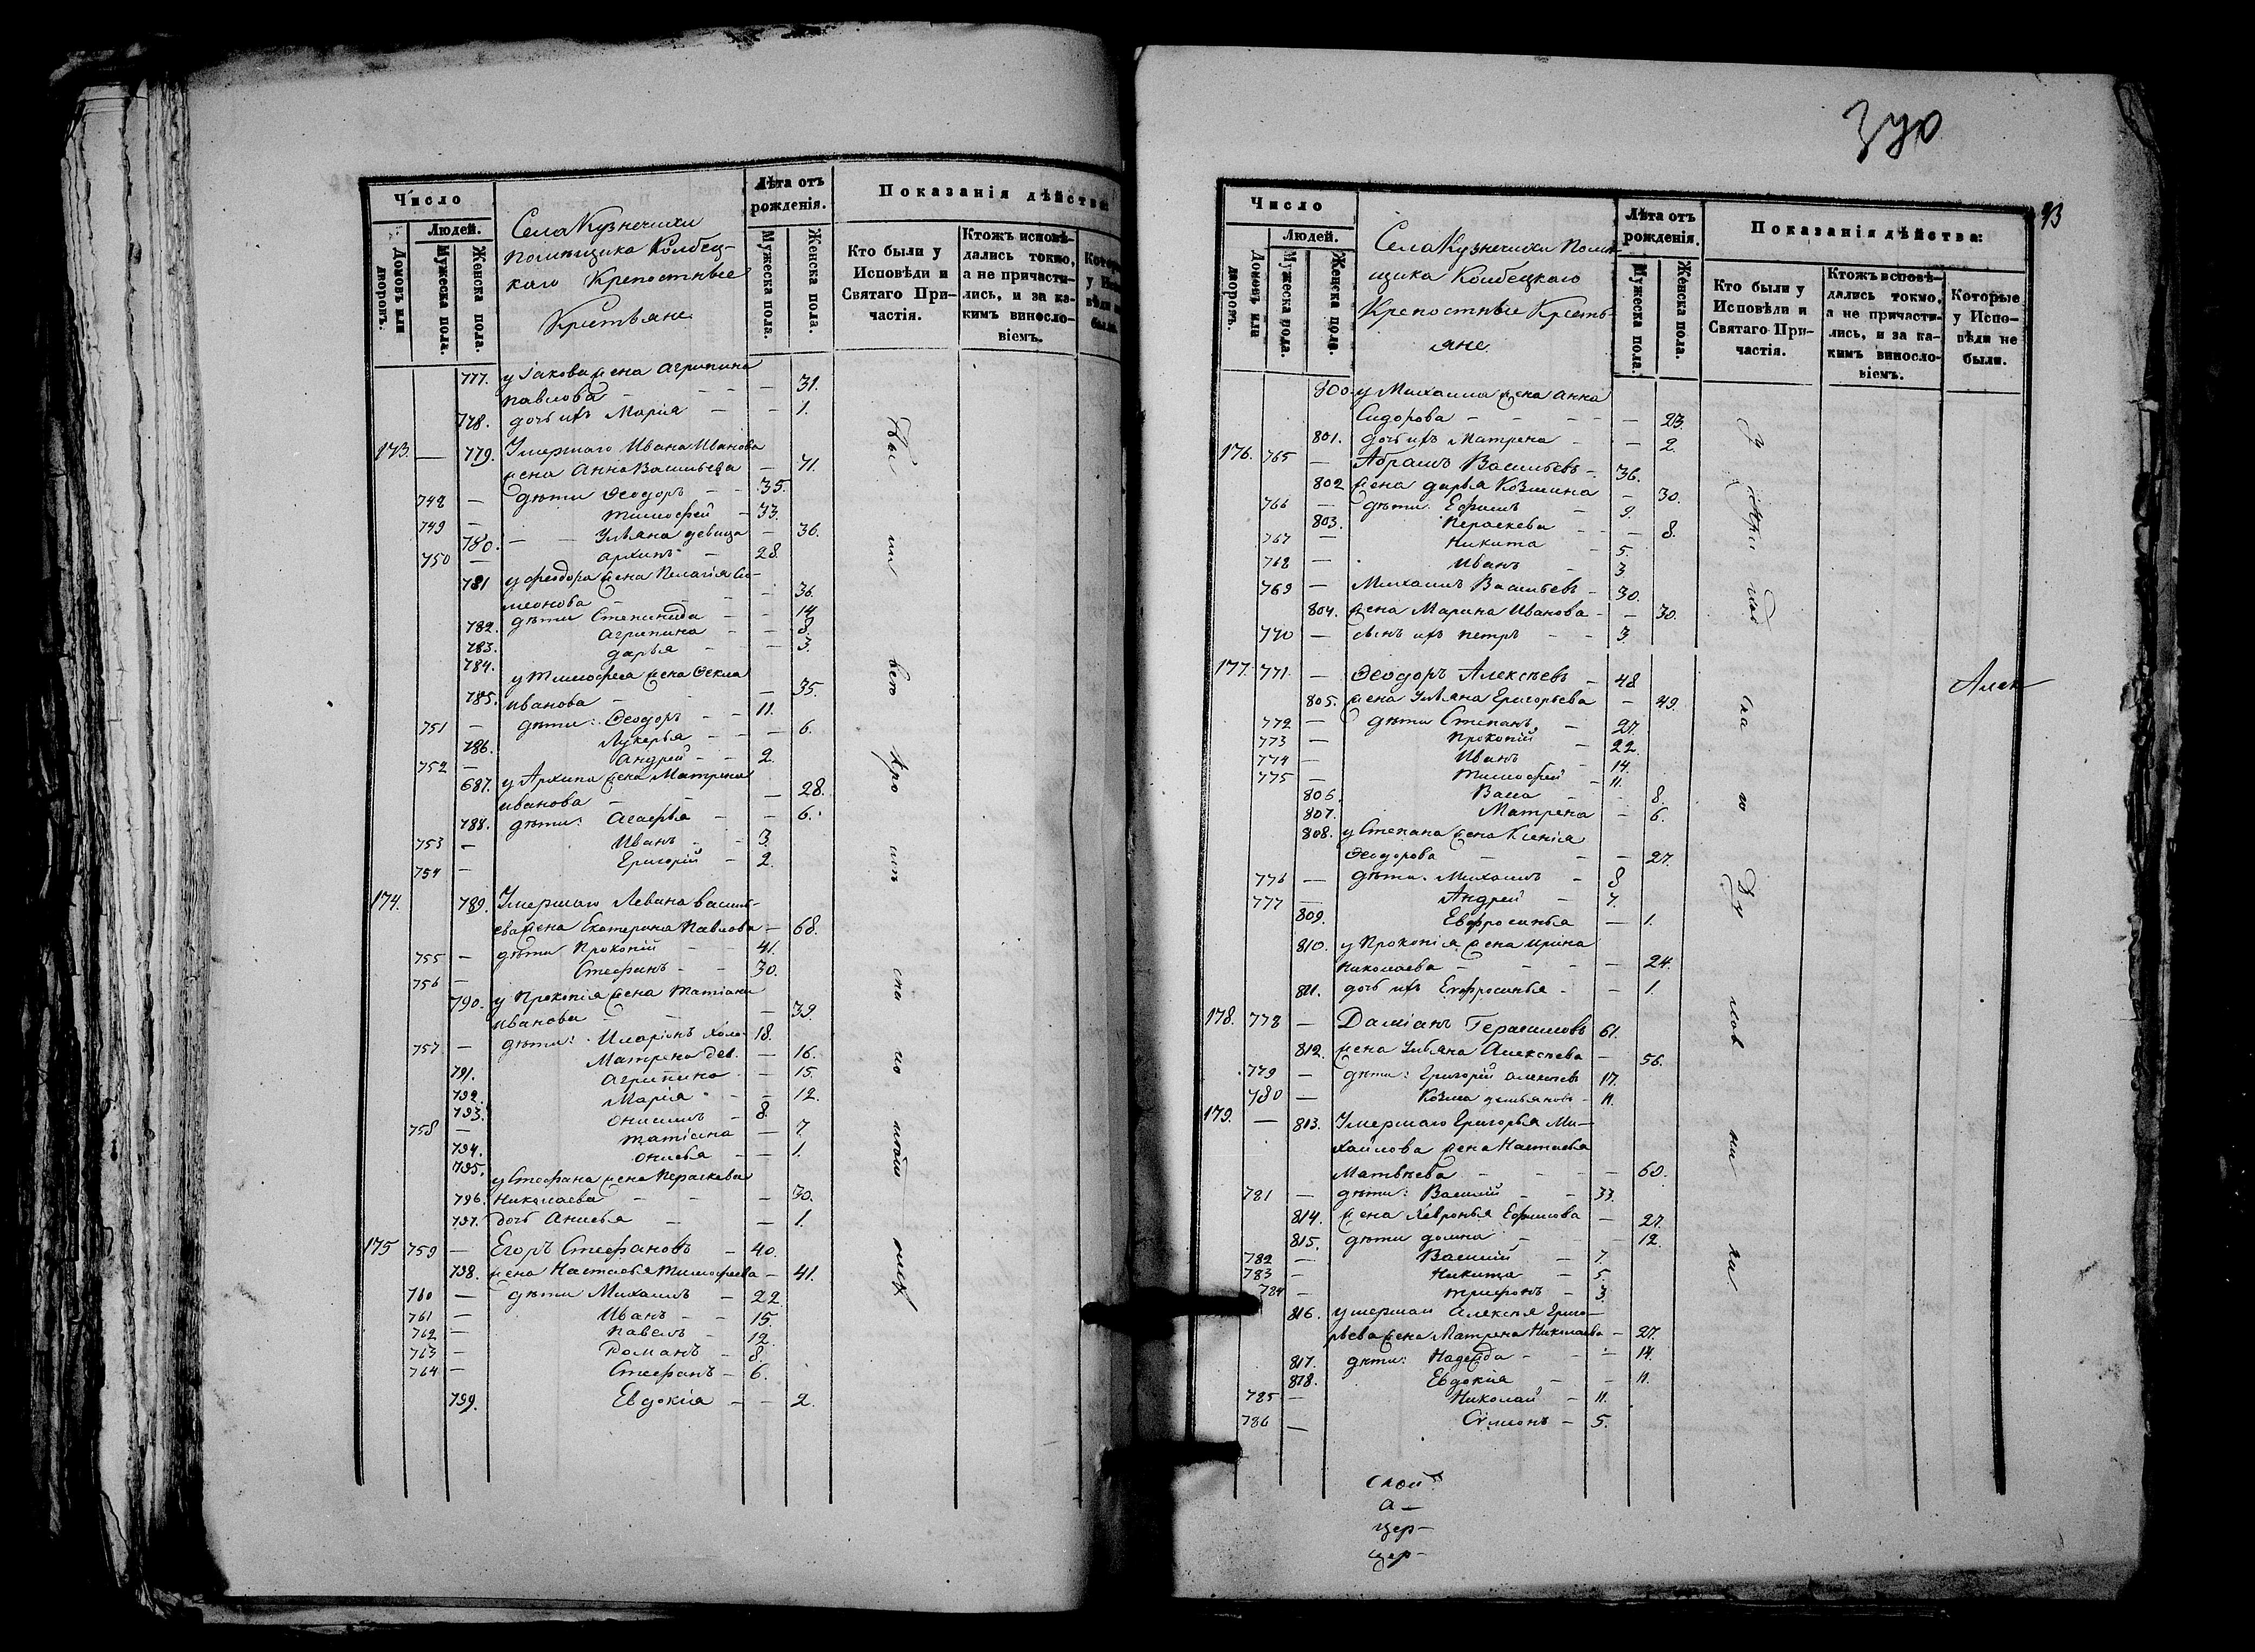 Число
Людей.
Домовъ или дворовъ.
Мужеска пола.
Женска пола.
Села Кузнечихи
помѣщика Колбец-
каго Крепостные
Крестьяне
Лѣта отъ рожденія.
Мужеска пола.
Женска пола.
Показанія дѣйства
Кто были у Исповѣди и Святаго Причастія.
Ктожъ исповѣдались токмо, а не причастились, и за какимъ винословіемъ.
777. у Іакова жена Агрипина
Павлова - - 31.
778. дочь ихъ Марія - - 1.
173. — 779. Умершаго Ивана Иванова
жена Анна Васильева - 71.
748 — дѣти Ѳеодоръ - - 35.
749 — Тимоѳей - 33.
780. — Ульяна девица - 36.
750 — Архипъ - 28.
781 у Ѳеодора жена Пелагія Си-
меонова - - 36.
782. дѣти Степанида - - 14
783. Агрипина - - 8.
784. Дарья - - 3.
у Тимоѳея жена Ѳекла
785. Иванова - - 35.
751 — дѣти: Ѳеодоръ - - 11.
786. Лукерья - - 6.
752 — Андрей - - 2.
687. у Архипа жена Матрена
Иванова - - 28.
788. дѣти: Агаѳья - - 6.
753 — Иванъ - - 3.
754 — Григорій - 2.
174. 789. Умершаго Левана Василь-
ева жена Екатерина Павлова - 68.
755 — дѣти Прокопій - - 41.
756 — Стефанъ - - 30.
790. у Прокопія жена Татіана
Иванова - - 39.
757 — дѣти: Иларіонъ холо. 18.
791. Матрена дев. - 16.
792. Агрипина - 15.
793. Марія - - 12.
758 — Онисимъ - 8.
794. Татіана - 7.
795. Онисья - - 1.
у Стефана жена Пераскева
796. Николаева - - 30.
797. дочь Анисья - - 1.
175 759 — Егоръ Стефановъ - 40.
798. жена Настасья Тимофеева - 41.
760 — дѣти Михаилъ - 22.
761 — Иванъ - - 15.
762 — Павелъ - 12.
763 — Романъ - 8.
764 — Стефанъ - 6.
799. Евдокія - - 2.
370
93
Число
Людей.
Домовъ или дворовъ.
Мужеска пола.
Женска пола.
Села Кузнечихи поме-
щика Колбецкаго
Крепостные Кресть-
яне.
Лѣта отъ рожденія.
Мужеска пола.
Женска пола.
Показанія дѣйства:
Кто были у Исповѣди и Святаго Причастія.
Ктожъ исповѣдались токмо, а не причастились, и за какимъ винословіемъ.
Которые у Исповѣди не были.
800. у Михаила жена Анна
Сидорова - - - 23.
801. дочь ихъ Матрена - - 2.
176. 765 — Абрамъ Васильевъ - 36.
802 жена Дарья Козмина - 30.
766 — дѣти: Ефимъ - 9.
803. Пераскева - - 8.
767 — Никита - 5.
768 — Иванъ - 3
769 — Михаилъ Васильевъ - 30.
804. жена Марина Иванова - - 30.
770 — сынъ ихъ Петръ - - 3.
177. 771. — Ѳеодоръ Алексѣевъ - 48
805. жена Ульяна Григорьева - 49.
772 — дѣти Степанъ - 27.
773 — Прокопій - 22.
774 — Иванъ - 14.
775 — Тимоѳей - 11.
806. Васа - - 8.
807. Матрена - 6.
808. у Степана жена Ксенія
Ѳеодорова - - - 27.
776 — дѣти. Михаилъ - 8
777 — Андрей - 7.
809. Евфросинья - 1.
810. у Прокопія жена Ирина
Николаева - - - 24.
811. дочь ихъ Евфросинья - - 1.
178. 778 — Даміанъ Герасимовъ 61.
812. жена Ульяна Алексѣева - 56.
779 — дѣти: Григорій Алексѣевъ 17.
780 — Козма Демьяновъ - 11.
179. — 813. Умершаго Григорья Ми-
хайлова жена Настасья
Матвѣева - - - 60.
781 — дѣти: Василій - - 33.
814. жена Хевронья Ефимова - 27.
815. дѣти Домна - - 12.
782 — Василій - 7.
783 — Никита - 5.
784 — Трифонъ - 3.
816. умершаго Алексѣя Григо-
рьева жена Матрена Николаева - 27.
817. дѣти: Надежда - - 14.
818. Евдокія - - 11.
785 — Николай - 11.
786 — Сѵмеонъ - 5.
Алек
а —
цер-
цер-